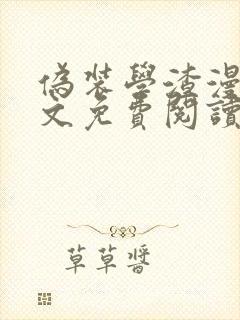 偽裝學渣漫
文免費閱讀
草草醬